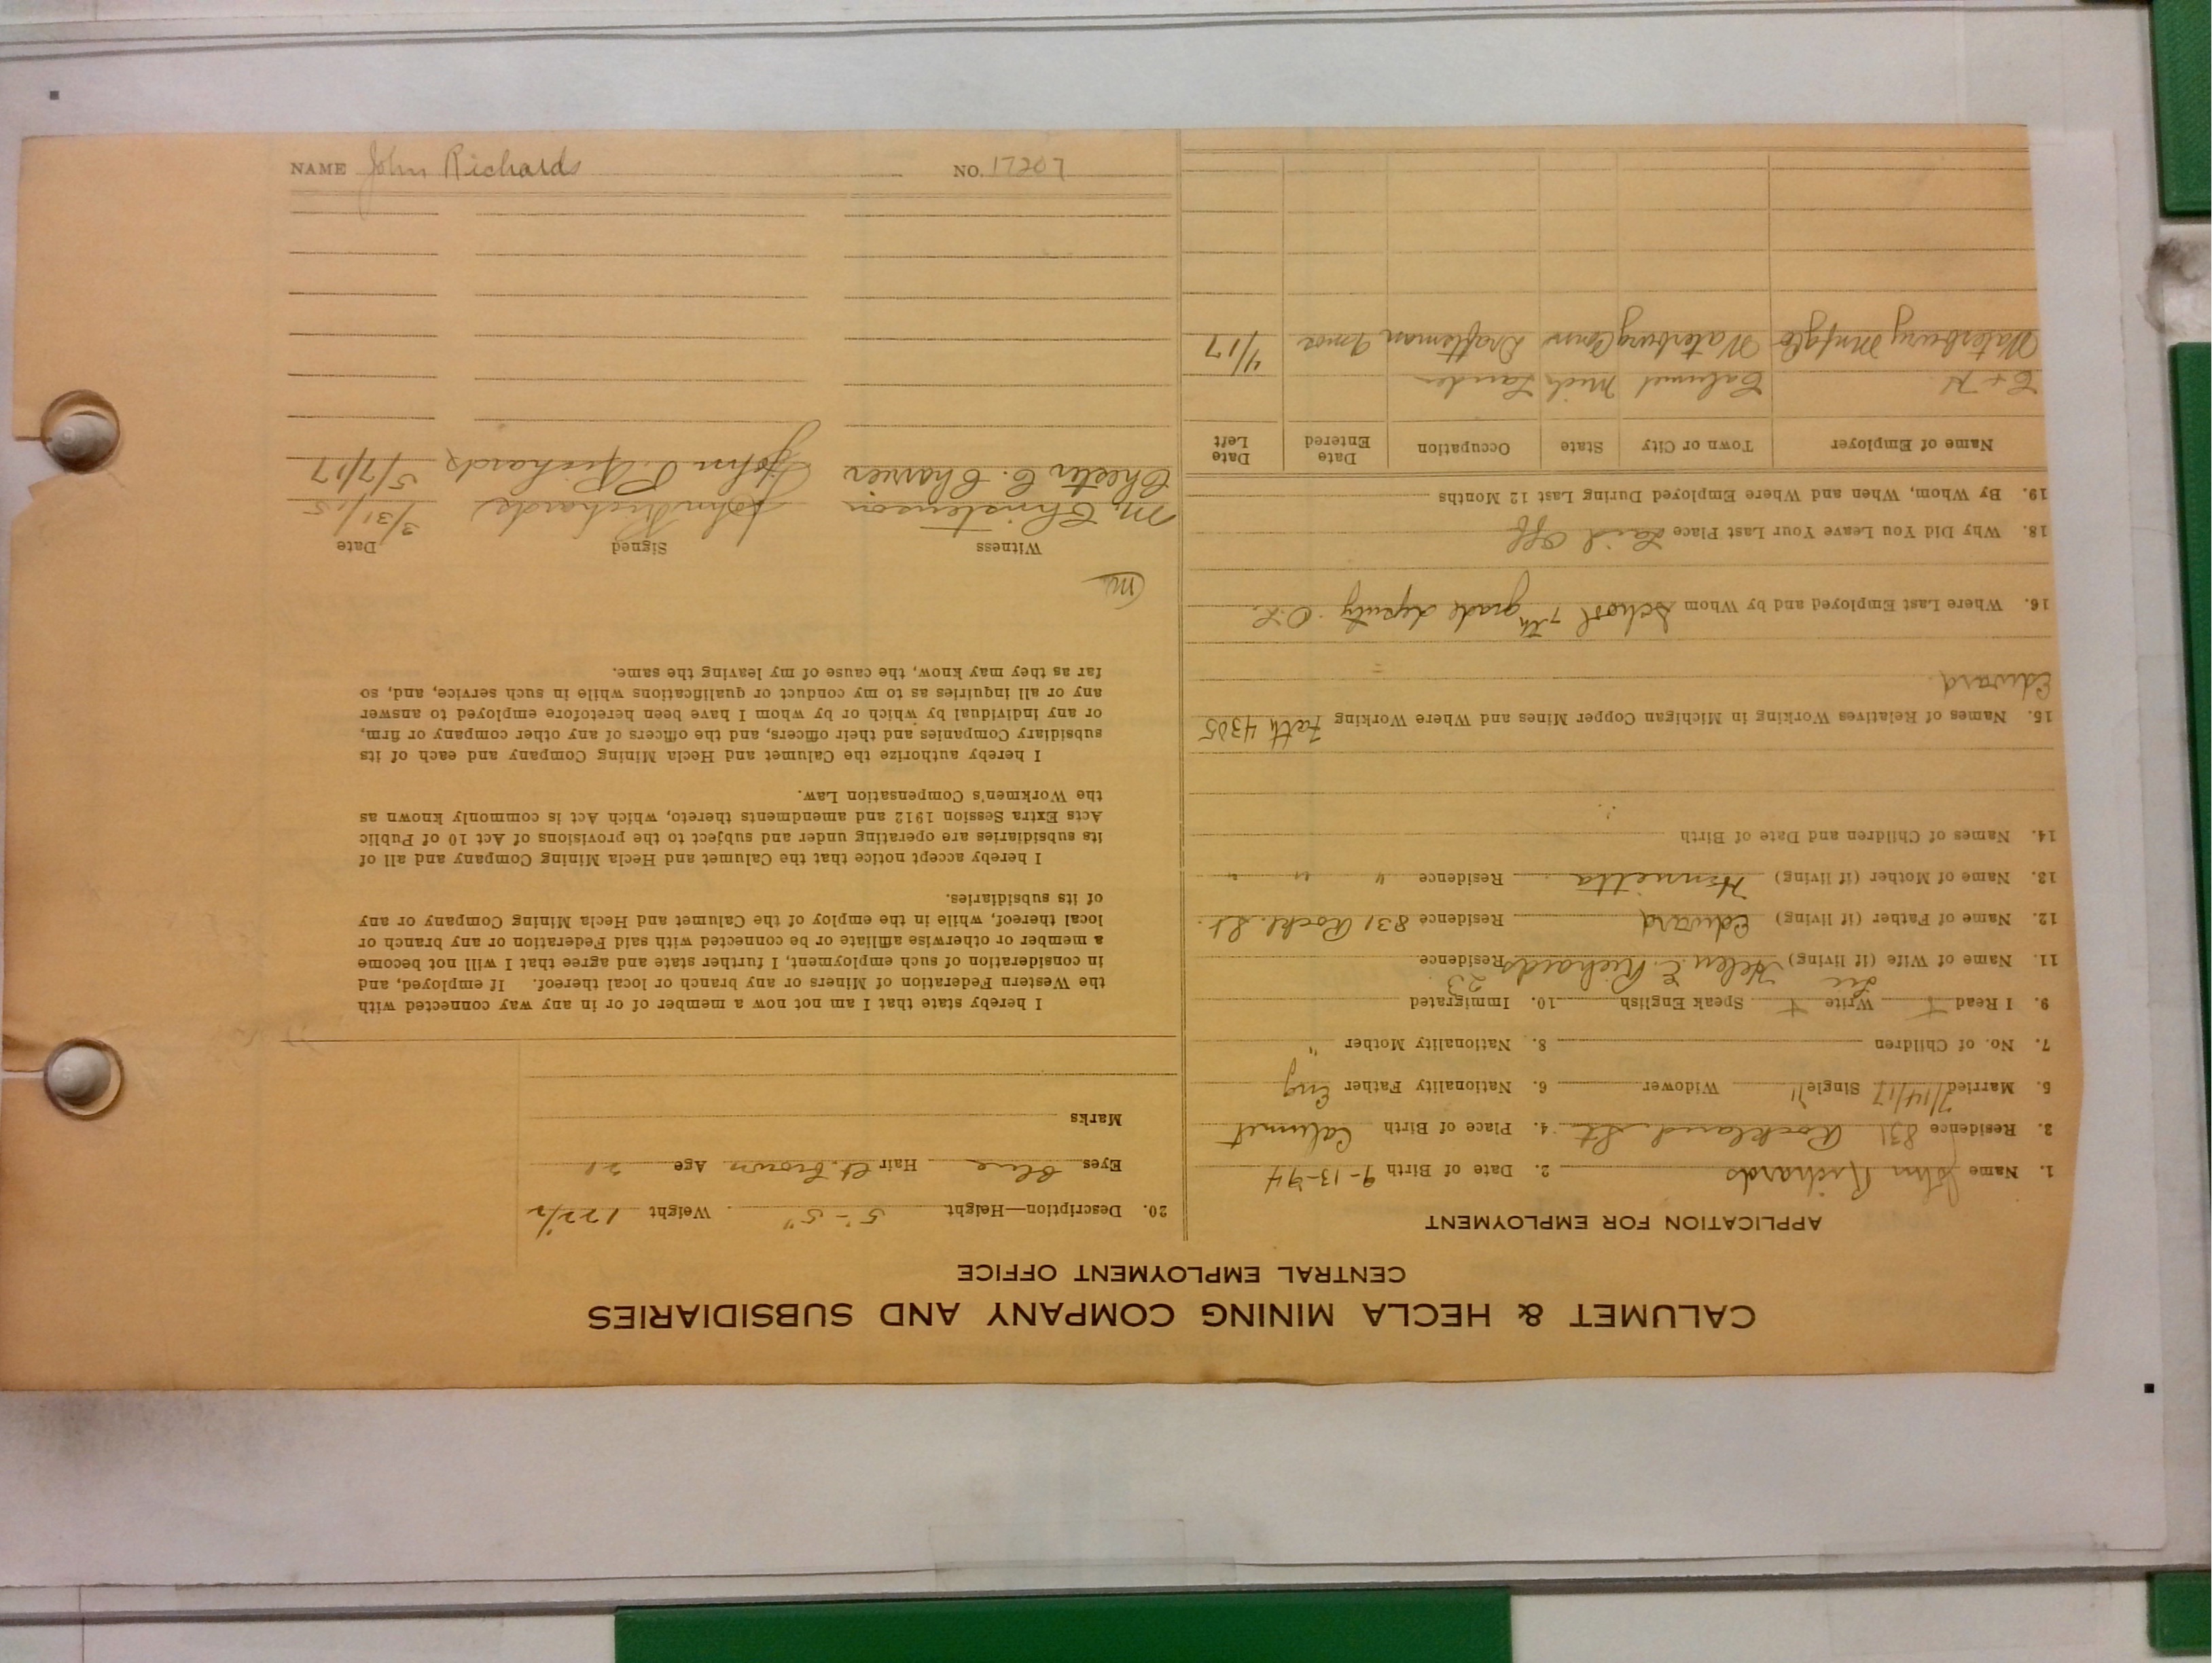 CALUMET & HECLA MINING COMPANY AND SUBSIDIARIES
CENTRAL EMPLOYMENT OFFICE
APPLICATION FOR EMPLOYMENT
1. Name John Richards 2. Date of Birth 9-13-94
3. Residence 831 Rockland St. 4. Place of Birth Calumet
5. Married 7/14/17 Single " Widower 6. Nationality Father Eng
7. No. of Children 8. Nationality Mother "
9. I Read + Write + Speak English 10. Immigrated
11. Name of Wife (if living) Helen E. Richards Residence
23
12. Name of Father (if living) Edward Residence 831 Rockl. St.
13. Name of Mother (if living) Henrietta Residence " " "
14. Names of Children and Date of Birth
15. Names of Relatives Working in Michigan Copper Mines and Where Working Fath 4305
Edward
16. Where Last Employed and by Whom School 7th grade deputy O.K.
18. Why Did You Leave Your Last Place Laid Off
19. By Whom, When and Where Employed During Last 12 Months
Name of Employer Town or City State Occupation Date Entered Date Left
C + H Calumet Mich
Waterbury Mnfg Co Waterbury Conn Draftsman 4/17
20. Description—Height 5'-5" Weight 122 1/2
Eyes Blue Hair Lt. Brown Age 21
Marks
I hereby state that I am not now a member of or in any way connected with
the Western Federation of Miners or any branch or local thereof. If employed, and
in consideration of such employment, I further state and agree that I will not become
a member or otherwise affiliate or be connected with said Federation or any branch or
local thereof, while in the employ of the Calumet and Hecla Mining Company or any
of its subsidiaries.
I hereby accept notice that the Calumet and Hecla Mining Company and all of
its subsidiaries are operating under and subject to the provisions of Act 10 of Public
Acts Extra Session 1912 and amendments thereto, which Act is commonly known as
the Workmen's Compensation Law.
I hereby authorize the Calumet and Hecla Mining Company and each of its
subsidiary Companies and their officers, and the officers of any other company or firm,
or any individual by which or by whom I have been heretofore employed to answer
any or all inquiries as to my conduct or qualifications while in such service, and, so
far as they may know, the cause of my leaving the same.
m
Witness Signed Date
M. Christenson John Richards 3/31/15
Chester C. Charrier John P. Richards 5/7/17
NAME John Richards NO. 17207